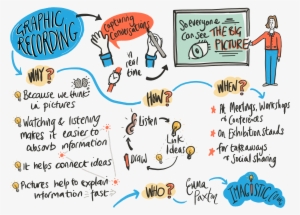 GRAPHIC
RECORDING
Capturing
Conversations
in real
time
So everyone
Can See
THE BIG
PICTURE
WHY?
Because we think
in pictures
Watching & listening
makes it easier to
absorb information
It helps connect ideas
Pictures help to explain
information fast
HOW?
Listen
Link
Ideas
DRAW
WHEN?
At Meetings, Workshops
& Conferences
On Exhibition Stands
For takeaways
& Social sharing
WHO?
Emma
Paxton
IMAGISTIC